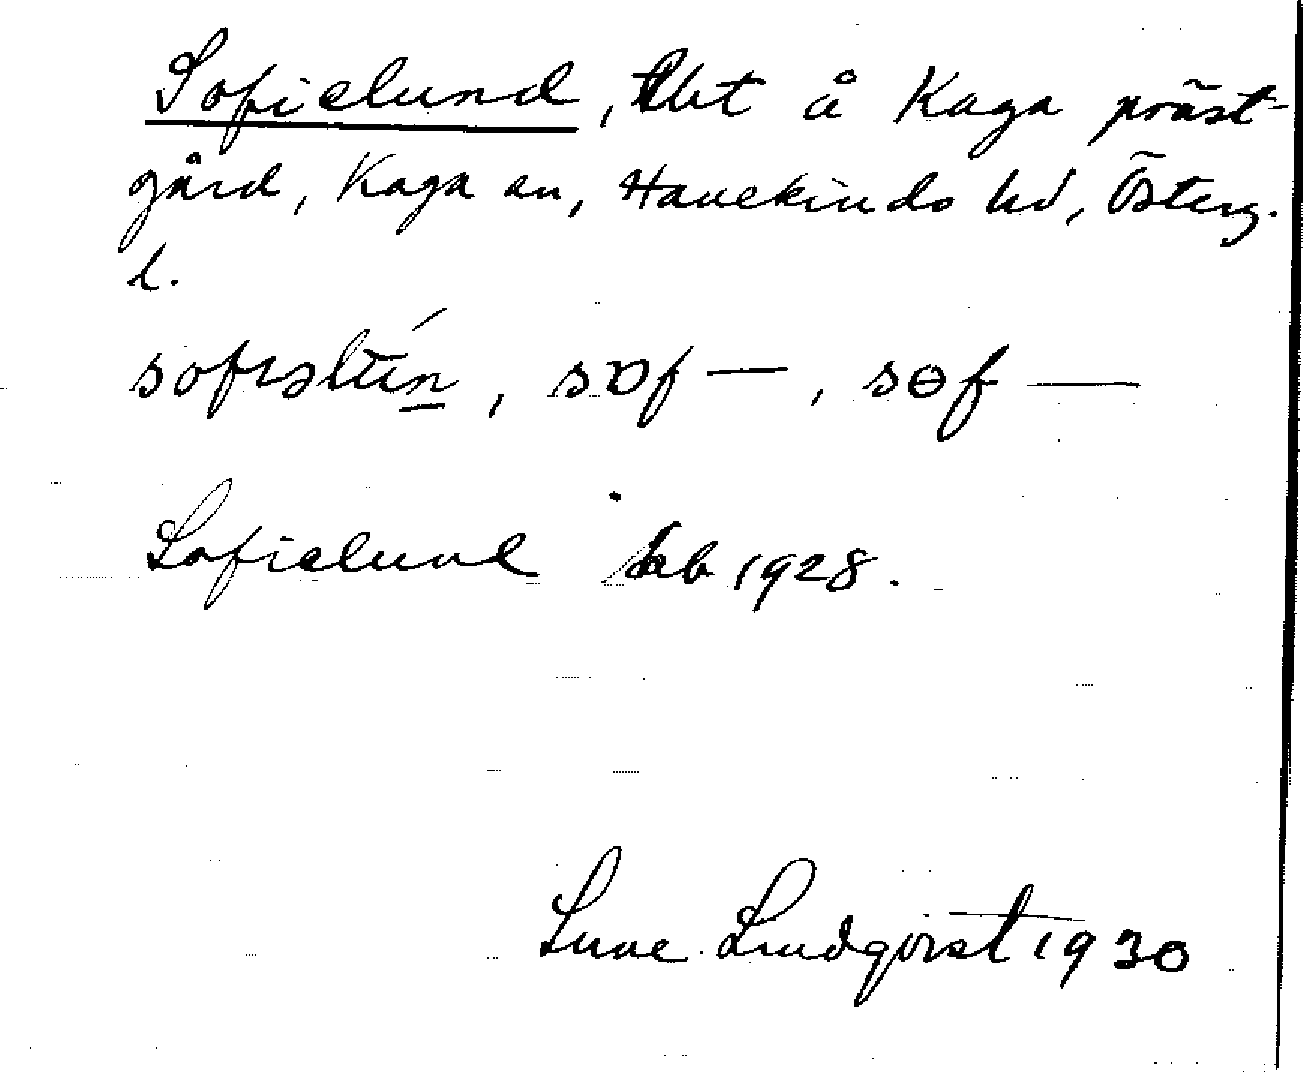 Sofielund, lht å Kaga präst-
gård, Kaga sn, Hanekinds hd, Österg.
l.
sofɪəlún, sɒf—, sɵf—
Sofielund kb 1928.
Sune Lindqvist 1930